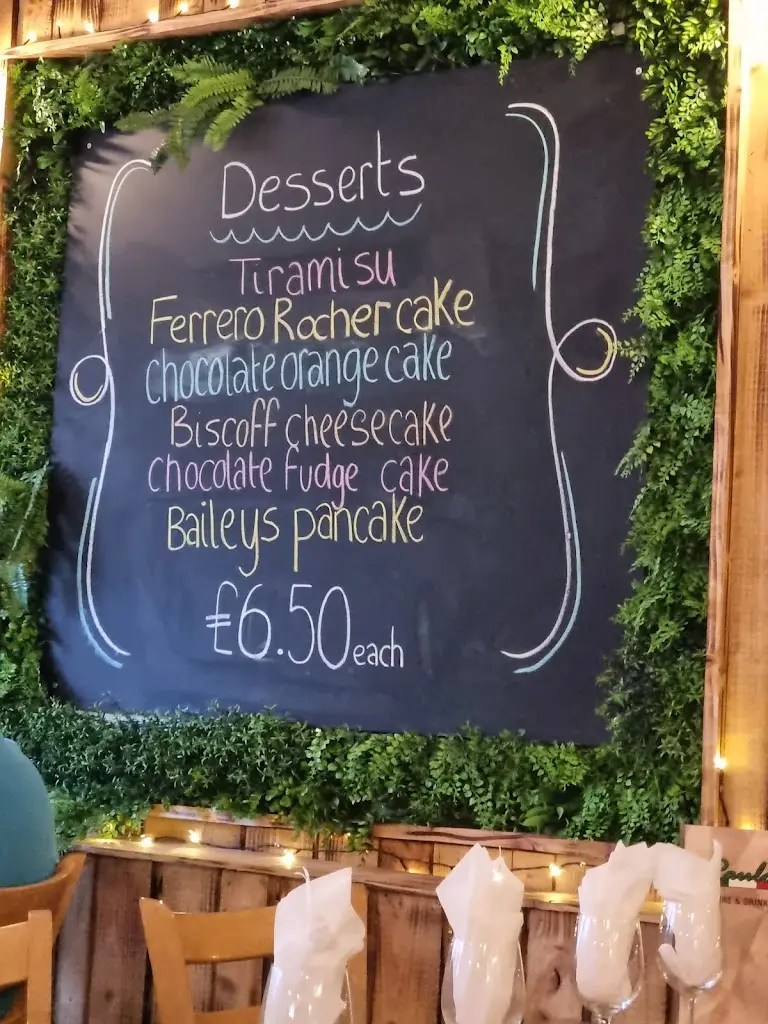 Desserts
Tiramisu
Ferrero Rocher cake
chocolate orange cake
Biscoff cheesecake
chocolate fudge cake
Baileys pancake
£6.50 each
& DRINK